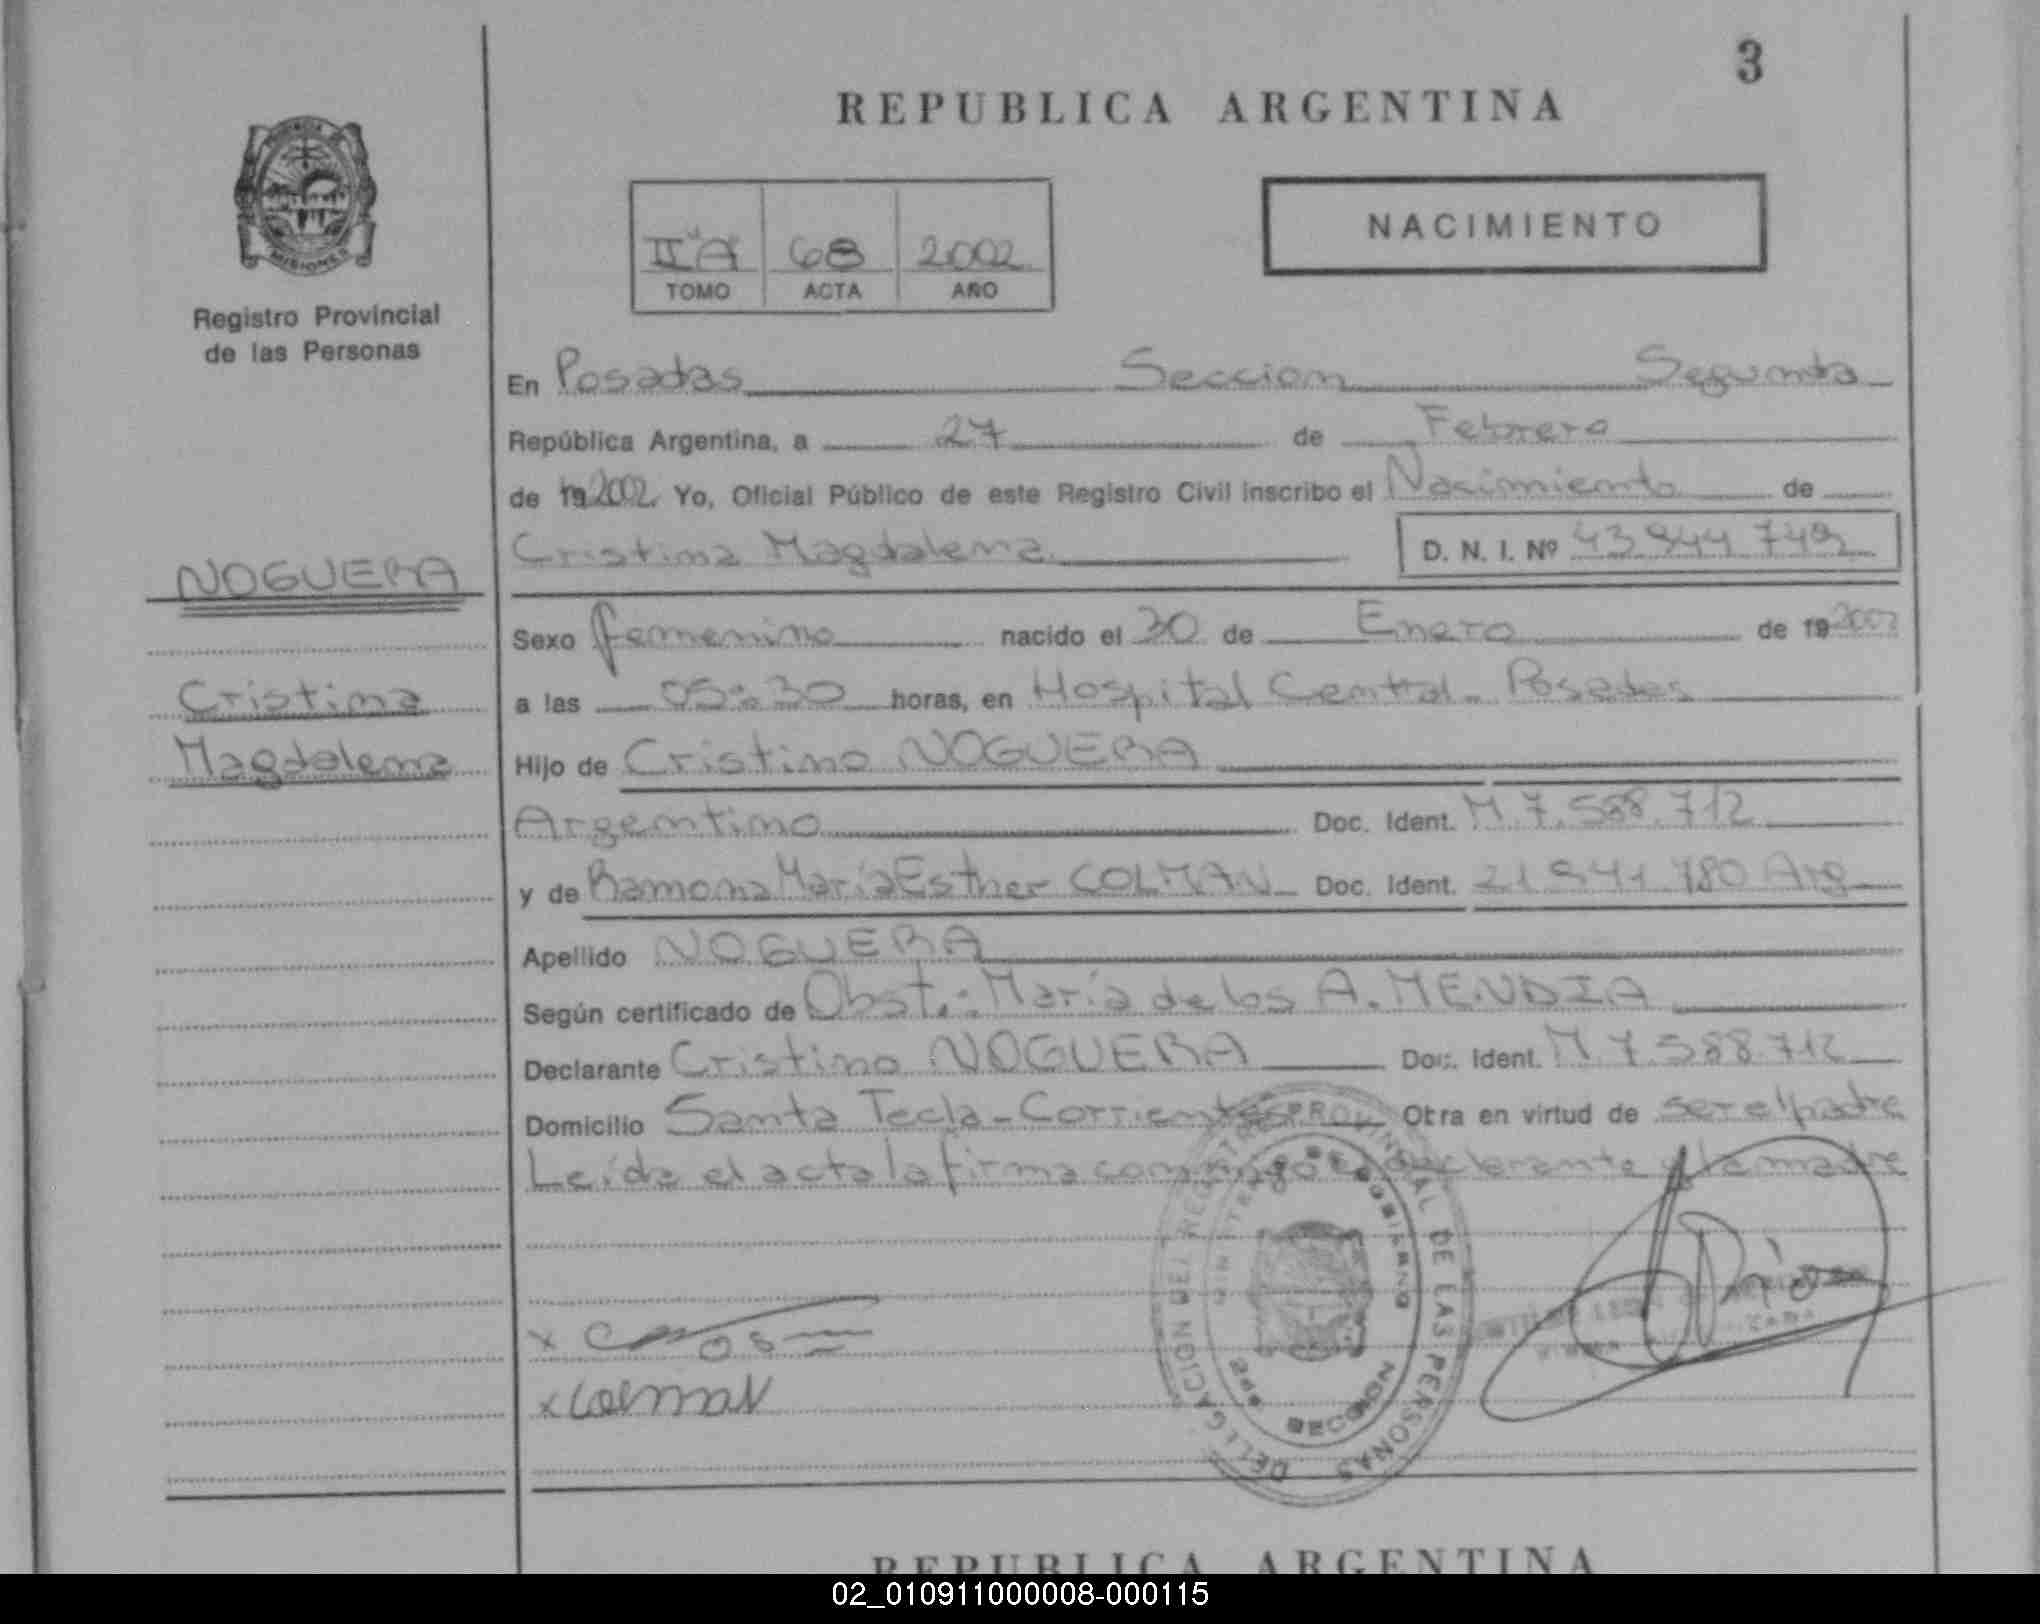 3
REPUBLICA ARGENTINA
NACIMIENTO
II "A" 68 2002
TOMO ACTA AÑO
MISIONES
Registro Provincial
de las Personas
En Posadas Seccion Segunda
República Argentina, a 27 de Febrero
de 19 2002 Yo, Oficial Público de este Registro Civil inscribo el Nacimiento de
Cristina Magdalena D. N. I. Nº 43 944 749
NOGUERA
Cristina
Magdalena
Sexo femenino nacido el 30 de Enero de 19 2002
a las 05:30 horas, en Hospital Central - Posadas
Hijo de Cristino NOGUERA
Argentino Doc. Ident. M 7.588.712
y de Ramona María Esther COLMAN Doc. Ident. 21 941 780 Arg
Apellido NOGUERA
Según certificado de Obst.: María de los A. MENDIA
Declarante Cristino NOGUERA Doc. Ident. M.7.588.712
Domicilio Santa Tecla - Corrientes Obra en virtud de ser el padre
Leída el acta la firma conmigo el declarante y la madre
DELEGACION DEL REGISTRO PROVINCIAL DE LAS PERSONAS
MINISTERIO DE GOBIERNO
SECCION
x Colman
REPUBLICA ARGENTINA
02_010911000008-000115